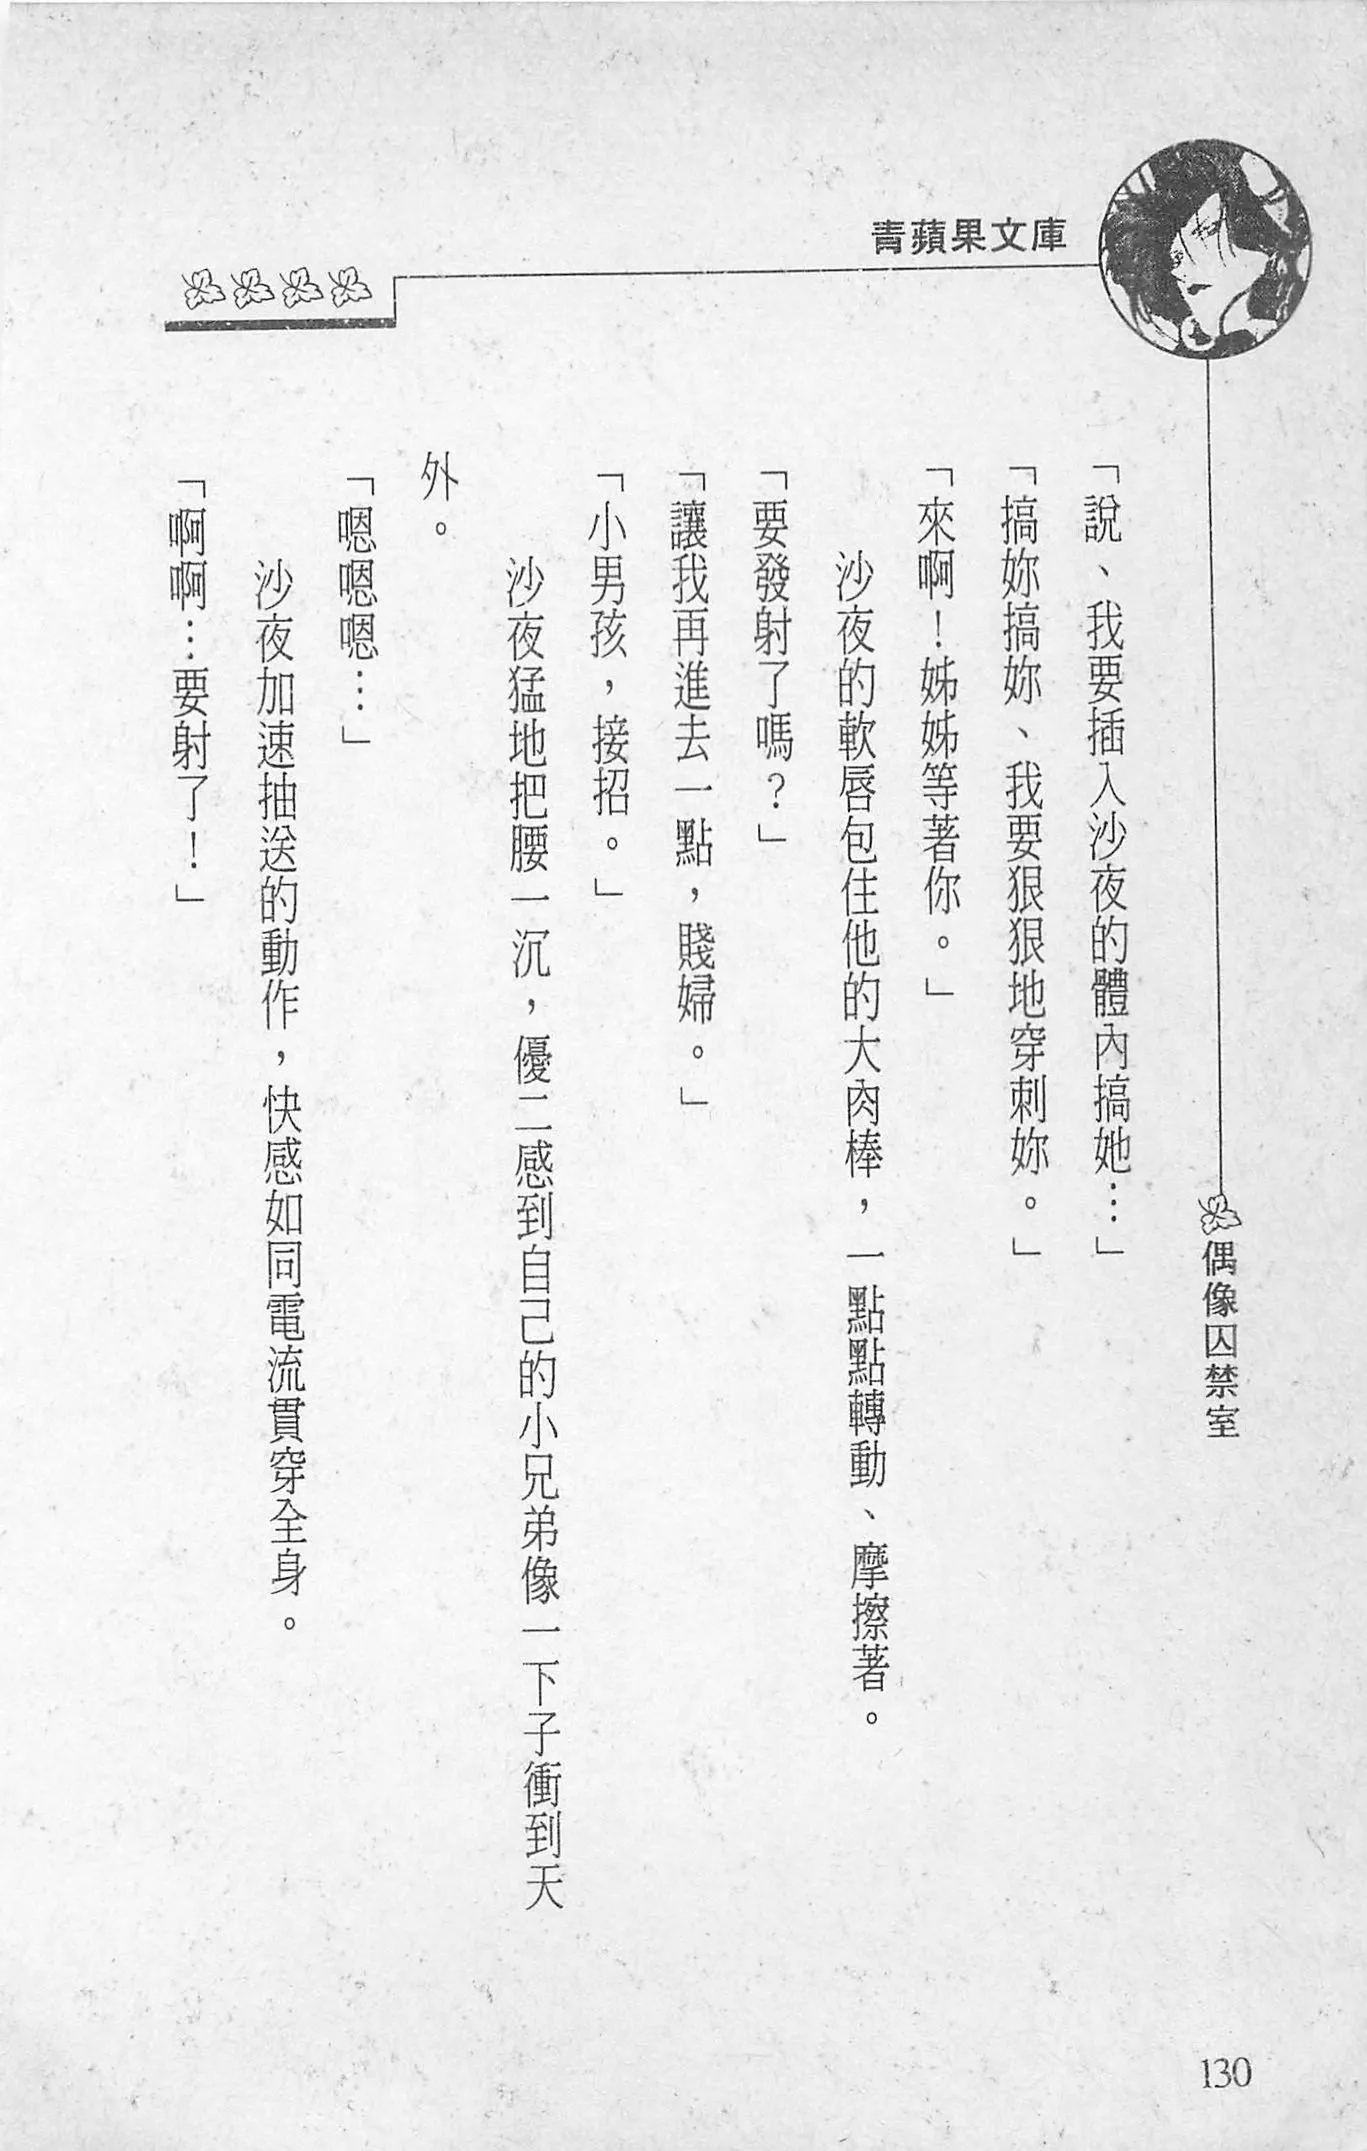 青蘋果文庫
偶像囚禁室
「說、我要插入沙夜的體內搞她…」
「搞妳搞妳、我要狠狠地穿刺妳。」
「來啊！姊姊等著你。」
沙夜的軟唇包住他的大肉棒，一點點轉動、摩擦著。
「要發射了嗎？」
「讓我再進去一點，賤婦。」
「小男孩，接招。」
沙夜猛地把腰一沉，優二感到自己的小兄弟像一下子衝到天
外。
「嗯嗯嗯…」
沙夜加速抽送的動作，快感如同電流貫穿全身。
「啊啊…要射了！」
130